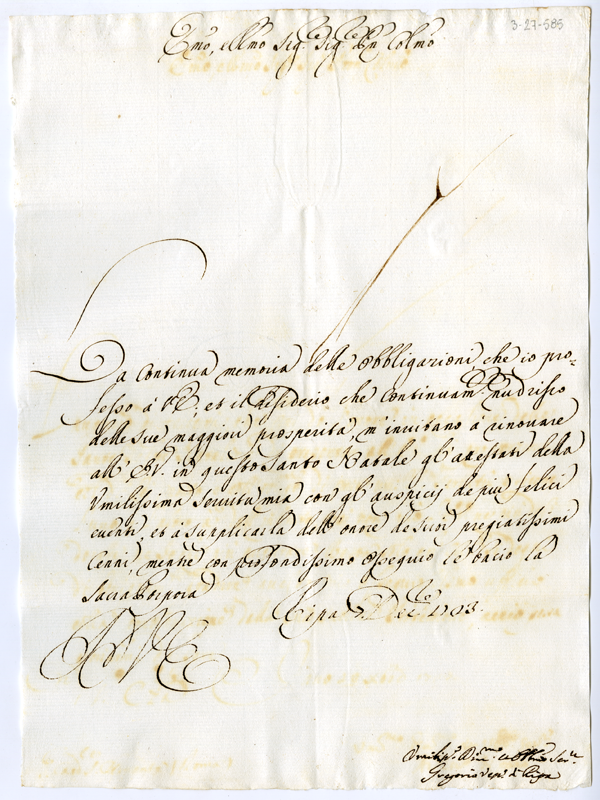 3-27-585
Emo, e Rmo Sig.re Sig.re Pñ Colmo
La continua memoria delle obbligazioni che io pro-
fesso à V.E. et il desiderio che continuam.te nudrisco
delle sue maggiori prosperità, m'invitano à rinovare
all' E.V. in questo Santo Natale gl'attestati della
Umilissima servitù mia con gl'auspicij de piu felici
eventi, et à supplicarla dell'onore de suoi pregiatissimi
Cenni, mentre con profondissimo ossequio le bacio la
Sacra Porpora
Ripa Xbre 1703.
V.E.
Umiliss.o Div.mo et Obbmo Ser.re
Gregorio Vesc.o di Ripa